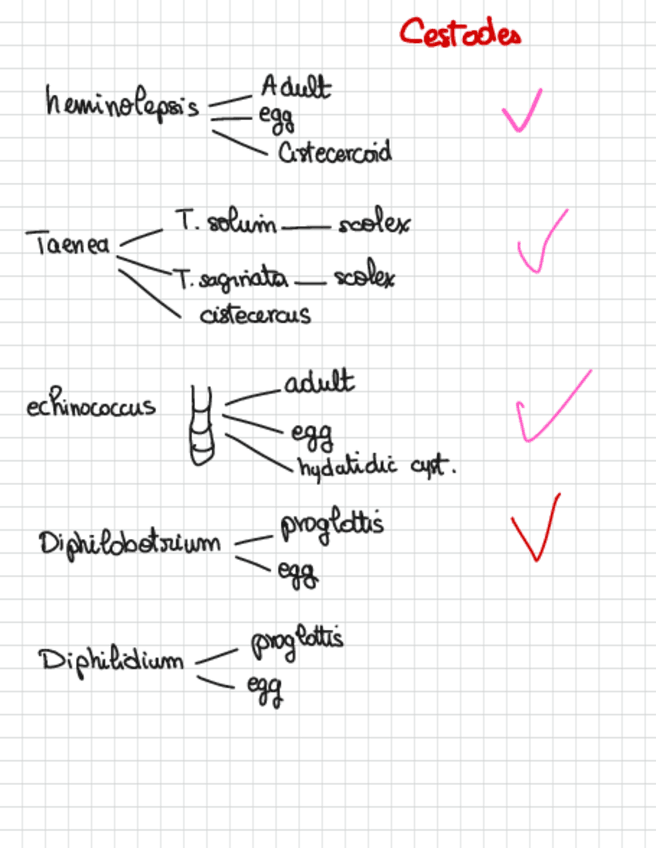 Cestodes
heminolepsis
Adult
egg
Cistecercoid
Taenea
T. solium — scolex
T. saginata — scolex
cistecercus
echinococcus
adult
egg
hydatidic cyst.
Diphilobotrium
proglottis
egg
Diphilidium
proglottis
egg